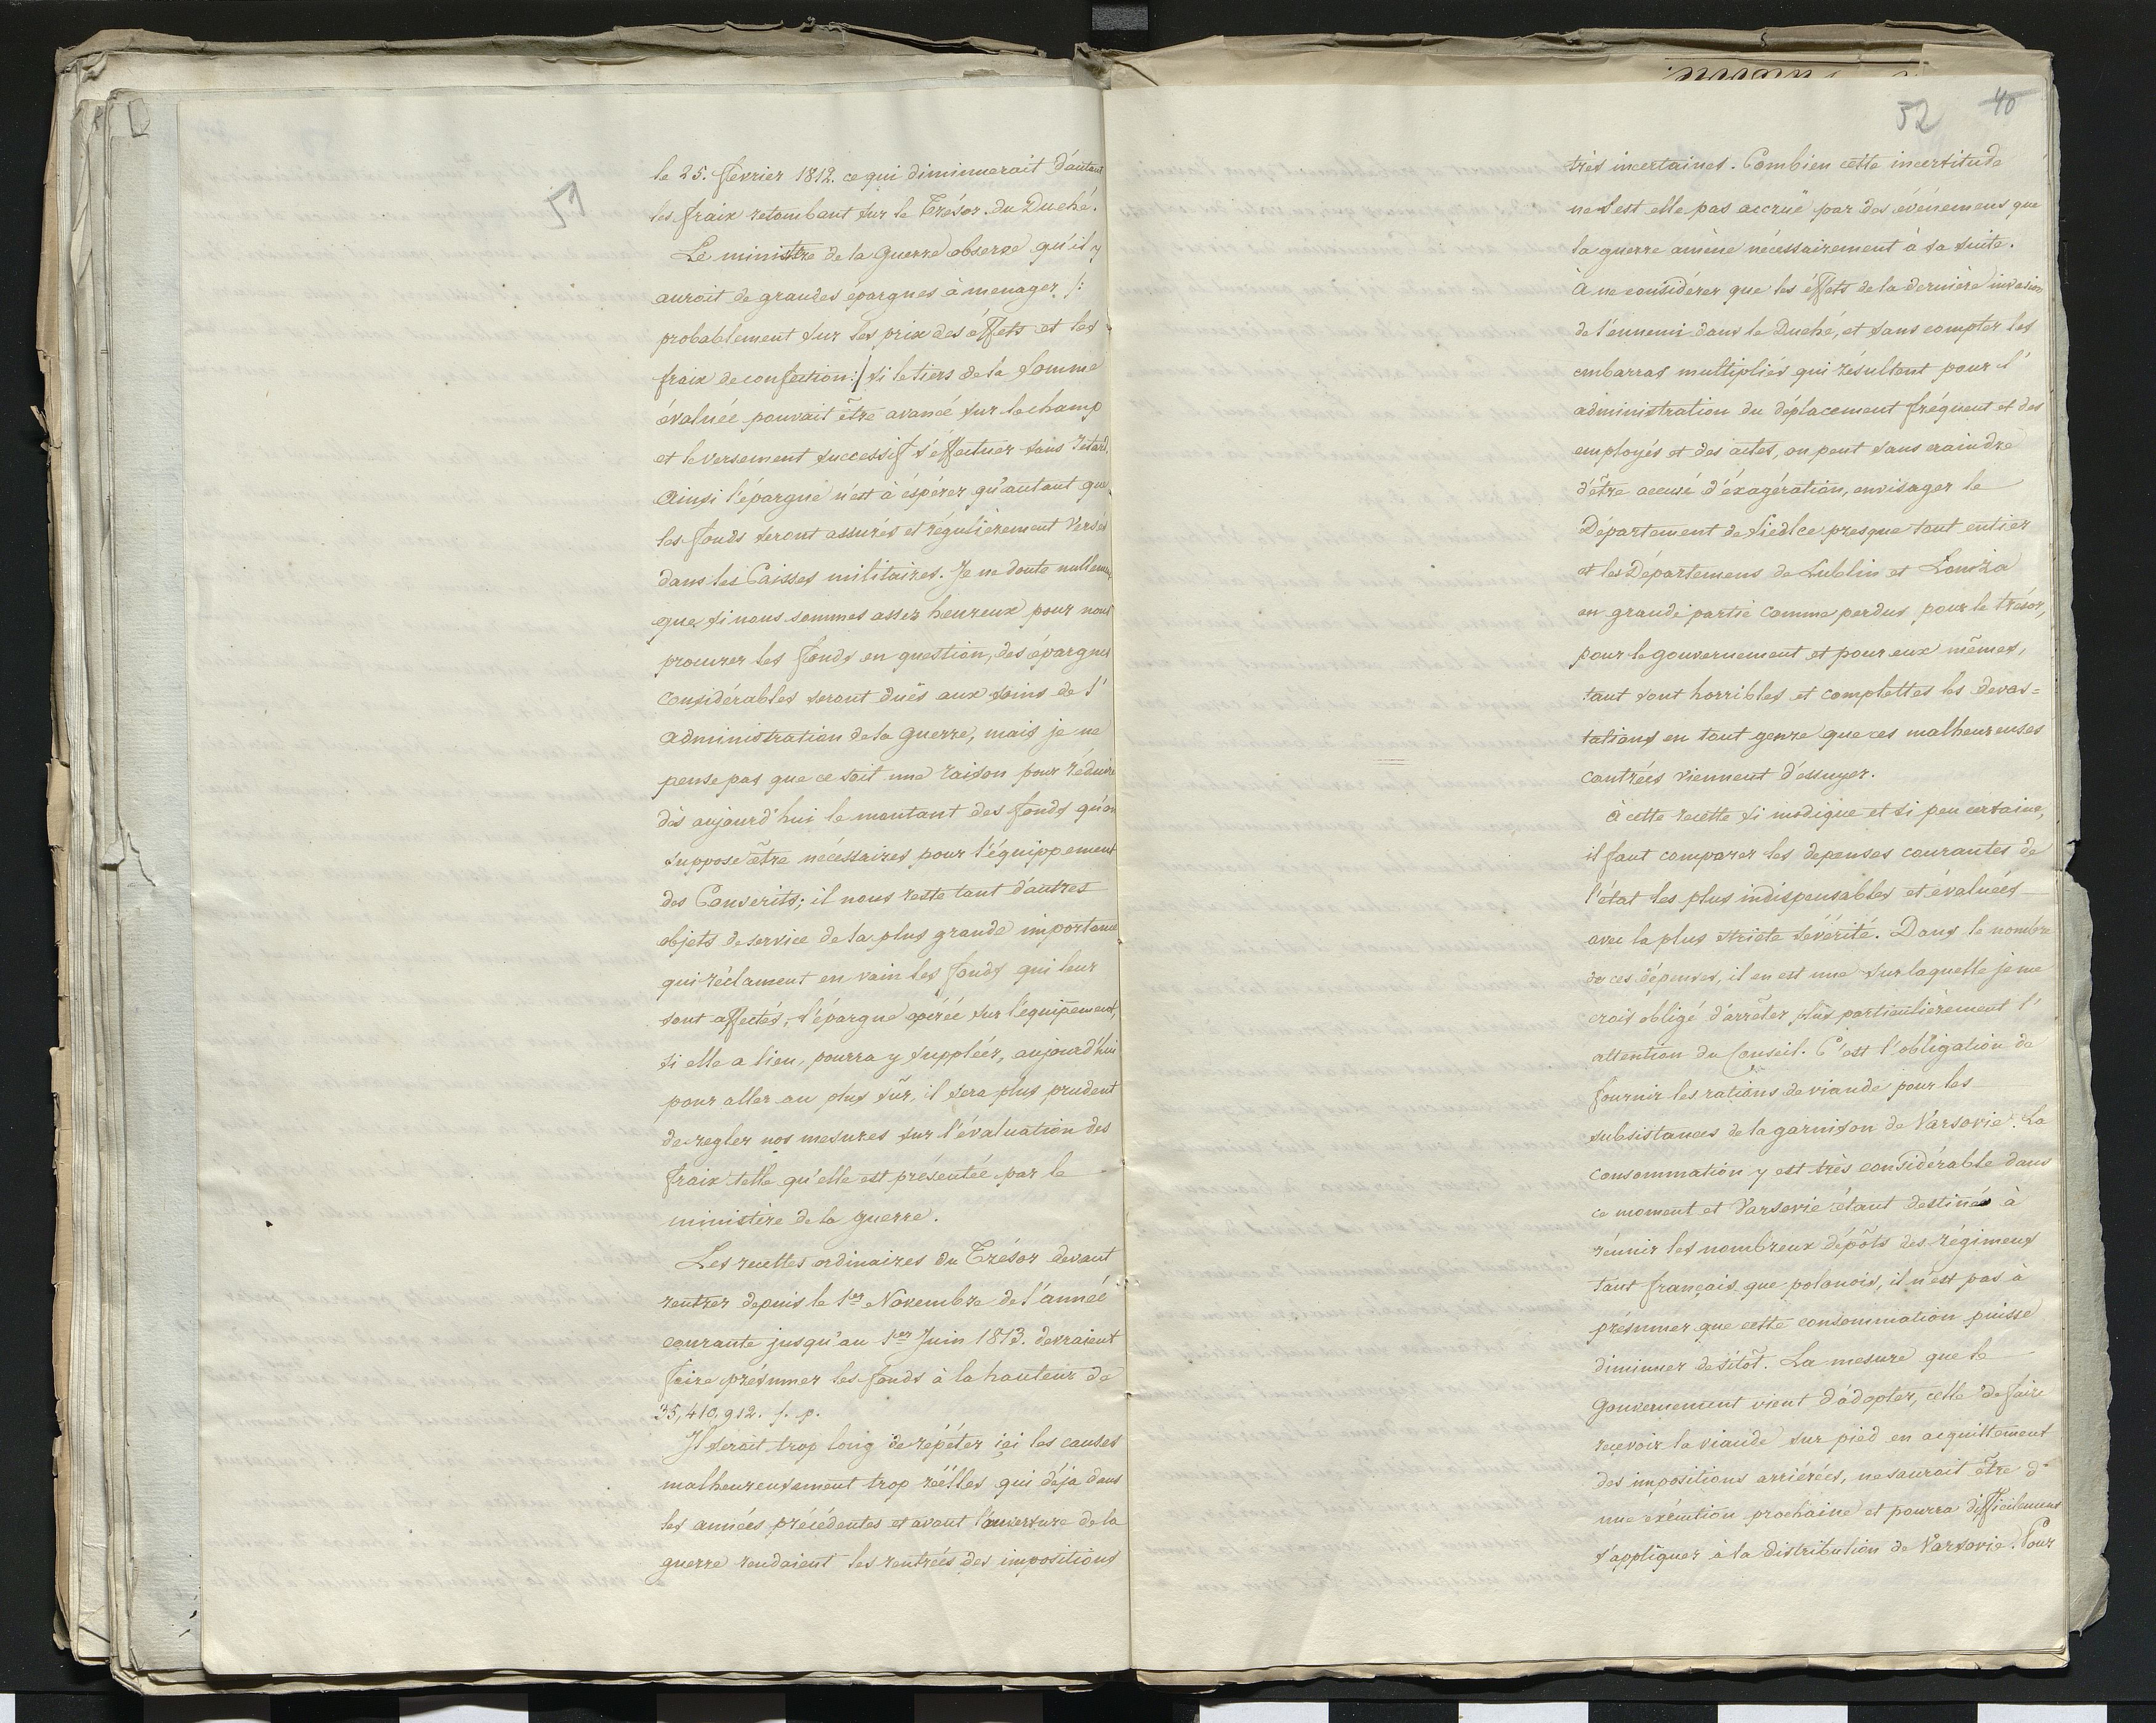 51
le 25. février 1812. ce qui diminuerait d'autant
les fraix retombant sur le Trésor du Duché.
Le ministre de la Guerre observe qu'il y
auroit de grandes épargnes à menager /:
probablement sur les prix des éffets et les
fraix de confection:/ si le tiers de la somme
évaluée pouvait être avancé sur le champ
et le versement successif s'éffectuer sans retard.
Ainsi l'épargne n'est à éspérer qu'autant que
les fonds seront assurés et régulièrement versés
dans les Caisses militaires. Je ne doute nullement
que si nous sommes assez heureux pour nous
procurer les fonds en question, des épargnes
considérables seront duës aux soins de l'
administration de la Guerre, mais je ne
pense pas que ce soit une raison pour réduire
dès aujourd'hui le montant des fonds qu'on
suppose être nécessaires pour l'équippement
des Conscrits; il nous reste tant d'autres
objets de service de la plus grande importance
qui réclament en vain les fonds qui leur
sont affectés; l'épargne opérée sur l'équipement,
si elle a lieu, pourra y suppléer, aujourd'hui
pour aller au plus sûr, il sera plus prudent
de regler nos mesures sur l'évaluation des
fraix telle qu'elle est présentée par le
ministère de la guerre.
Les recettes ordinaires du Trésor devant
rentrer depuis le 1er Novembre de l'année
courante jusqu'au 1er Juin 1813. devraient
faire présumer les fonds à la hauteur de
35,410,912. f. p.
Il serait trop long de répéter içi les causes
malheureusement trop réélles qui déja dans
les années précédentes et avant l'ouverture de la
guerre rendaient les rentrées des impositions
52 40
très incertaines. Combien cette incertitude
ne s'est elle pas accruë par des événemens que
la guerre amène nécessairement à sa suite.
À ne considérer que les éffets de la dernière invasion
de l'ennemi dans le Duché, et sans compter les
embarras multipliés qui résultent pour l'
administration du déplacement fréquent et des
employés et des actes, on peut sans craindre
d'être accusé d'éxagération, envisager le
Département de Siedlce presque tout entier
et les Départemens de Lublin et Lomża
en grande partie comme perdus pour le trésor,
pour le gouvernement et pour eux mêmes,
tant sont horribles et complettes les devas=
tations en tout genre que ces malheureuses
contrées viennent d'essuyer.
À cette recette si modique et si peu certaine,
il faut comparer les depenses courantes de
l'état les plus indispensables et évaluées
avec la plus stricte sévérité. Dans le nombre
de ces dépenses, il en est une sur laquelle je me
crois obligé d'arrêter plus particulièrement l'
attention du Conseil. C'est l'obligation de
fournir les rations de viande pour les
subsistances de la garnison de Varsovie. La
consommation y est très considérable dans
ce moment et Varsovie étant destinée à
réunir les nombreux dépôts des régimens
tant français que polonois, il n'est pas à
présumer que cette consommation puisse
diminuer de sitôt. La mesure que le
Gouvernement vient d'adopter, celle de faire
recevoir la viande sur pied en acquittement
des impositions arriérées, ne saurait être d'
une exécution prochaine et pourra difficilement
s'appliquer à la distribution de Varsovie. Pour